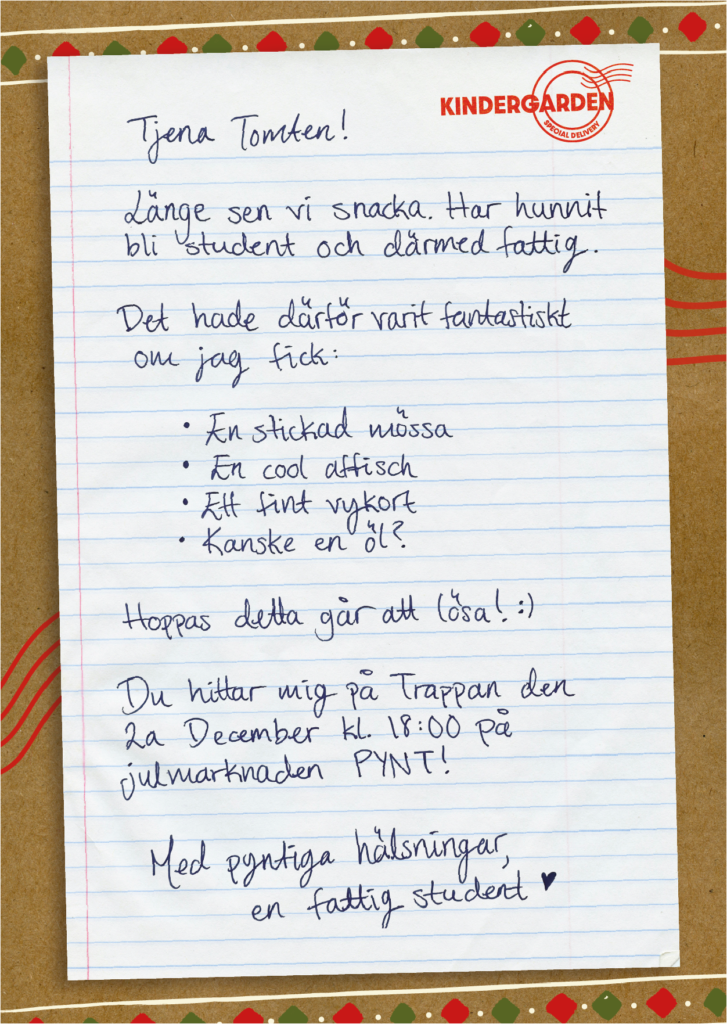 KINDERGARDEN
SPECIAL DELIVERY
Tjena Tomten!
Länge sen vi snacka. Har hunnit
bli student och därmed fattig.
Det hade därför varit fantastiskt
om jag fick:
• En stickad mössa
• En cool affisch
• Ett fint vykort
• Kanske en öl?
Hoppas detta går att lösa! :)
Du hittar mig på Trappan den
2a December kl. 18:00 på
julmarknaden PYNT!
Med pyntiga hälsningar,
en fattig student ♥